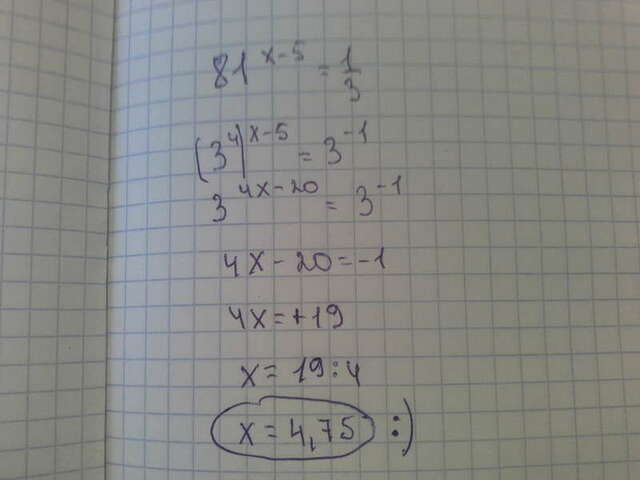 81^(x-5) = 1/3
(3^4)^(x-5) = 3^(-1)
3^(4x-20) = 3^(-1)
4x - 20 = -1
4x = +19
x = 19:4
x = 4,75 :)